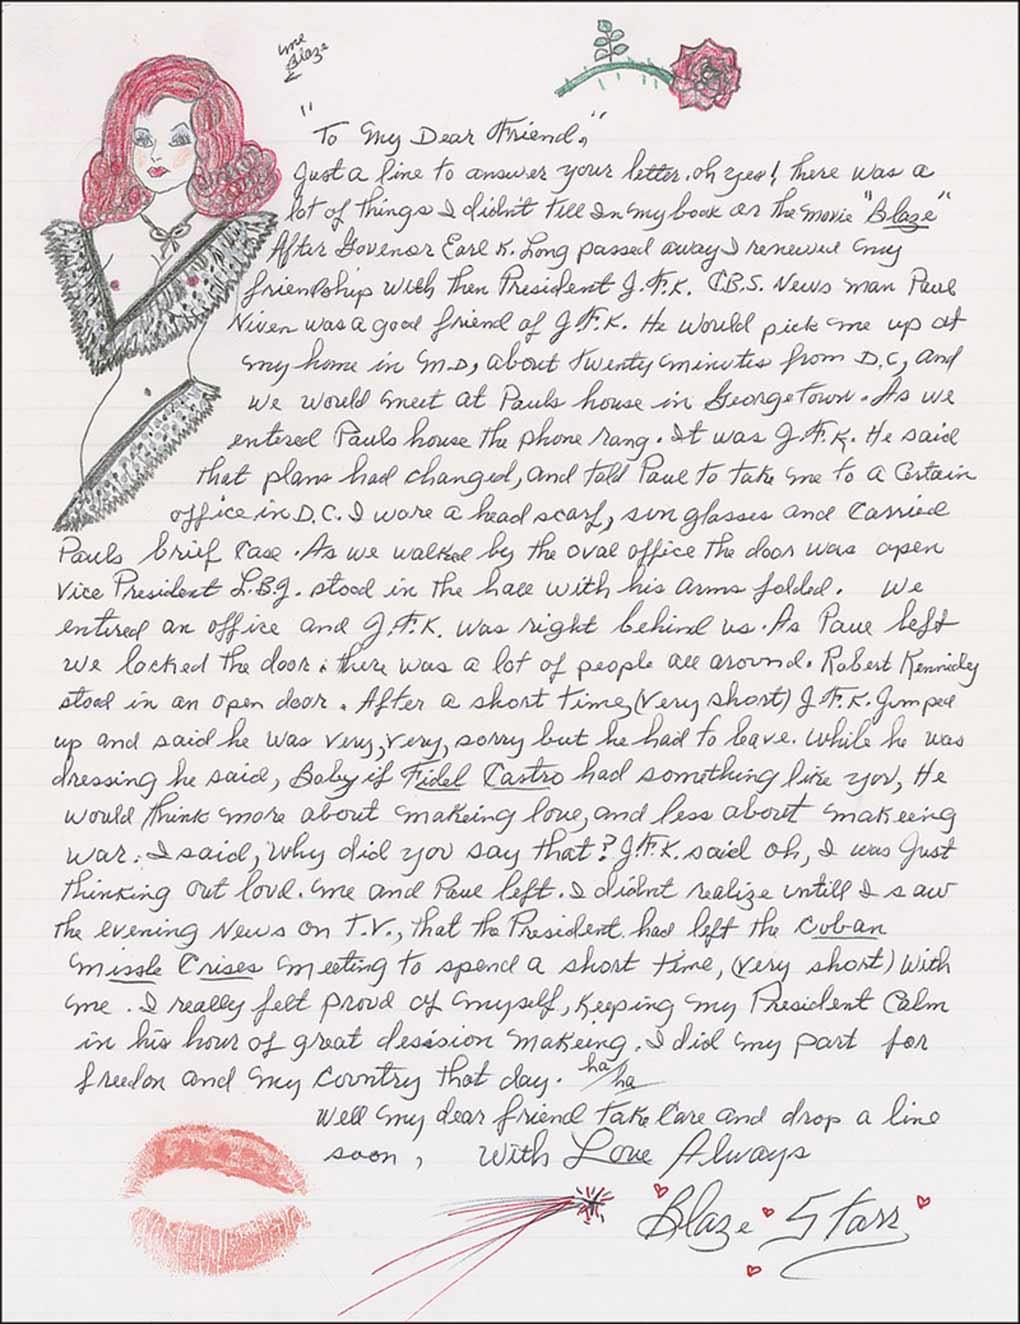 me
Blaze
"To My Dear Friend,"
Just a line to answer your letter. oh yes! there was a
lot of things I didn't tell In my book or the movie "Blaze"
After Govenor Earl K. Long passed away I renewed my
friendship with then President J.F.K. C.B.S. News man Paul
Niven was a good friend of J.F.K. He would pick me up at
my home in M.D, about twenty minutes from D.C, and
we would meet at Pauls house in Georgetown. As we
entered Pauls house the phone rang. It was J.F.K. He said
that plans had changed, and told Paul to take me to a Certain
office in D.C. I wore a head scarf, sun glasses and Carried
Pauls brief Case. As we walked by the oval office the door was open
Vice President L.B.J. stood in the hall with his arms folded. We
entered an office and J.F.K. was right behind us. As Paul left
we locked the door. there was a lot of people all around. Robert Kennidey
stood in an open door. After a short time, (very short) J.F.K. Jumped
up and said he was very, very, sorry but he had to leave. While he was
dressing he said, Baby if Fidel Castro had something like you, He
would think more about makeing love, and less about makeeing
war. I said, Why did you say that? J.F.K. said oh, I was Just
thinking out loud. Me and Paul left. I didn't realize untill I saw
the evening News on T.V., that the President had left the Cuban
Missle Crises Meeting to spend a short time, (very short) With
me. I really felt proud of myself, Keeping my President Calm
in his hour of great desision Makeing. I did my part for
freedon and my Country that day. ha/ha
Well my dear friend take Care and drop a line
soon, With Love Always
Blaze Starr